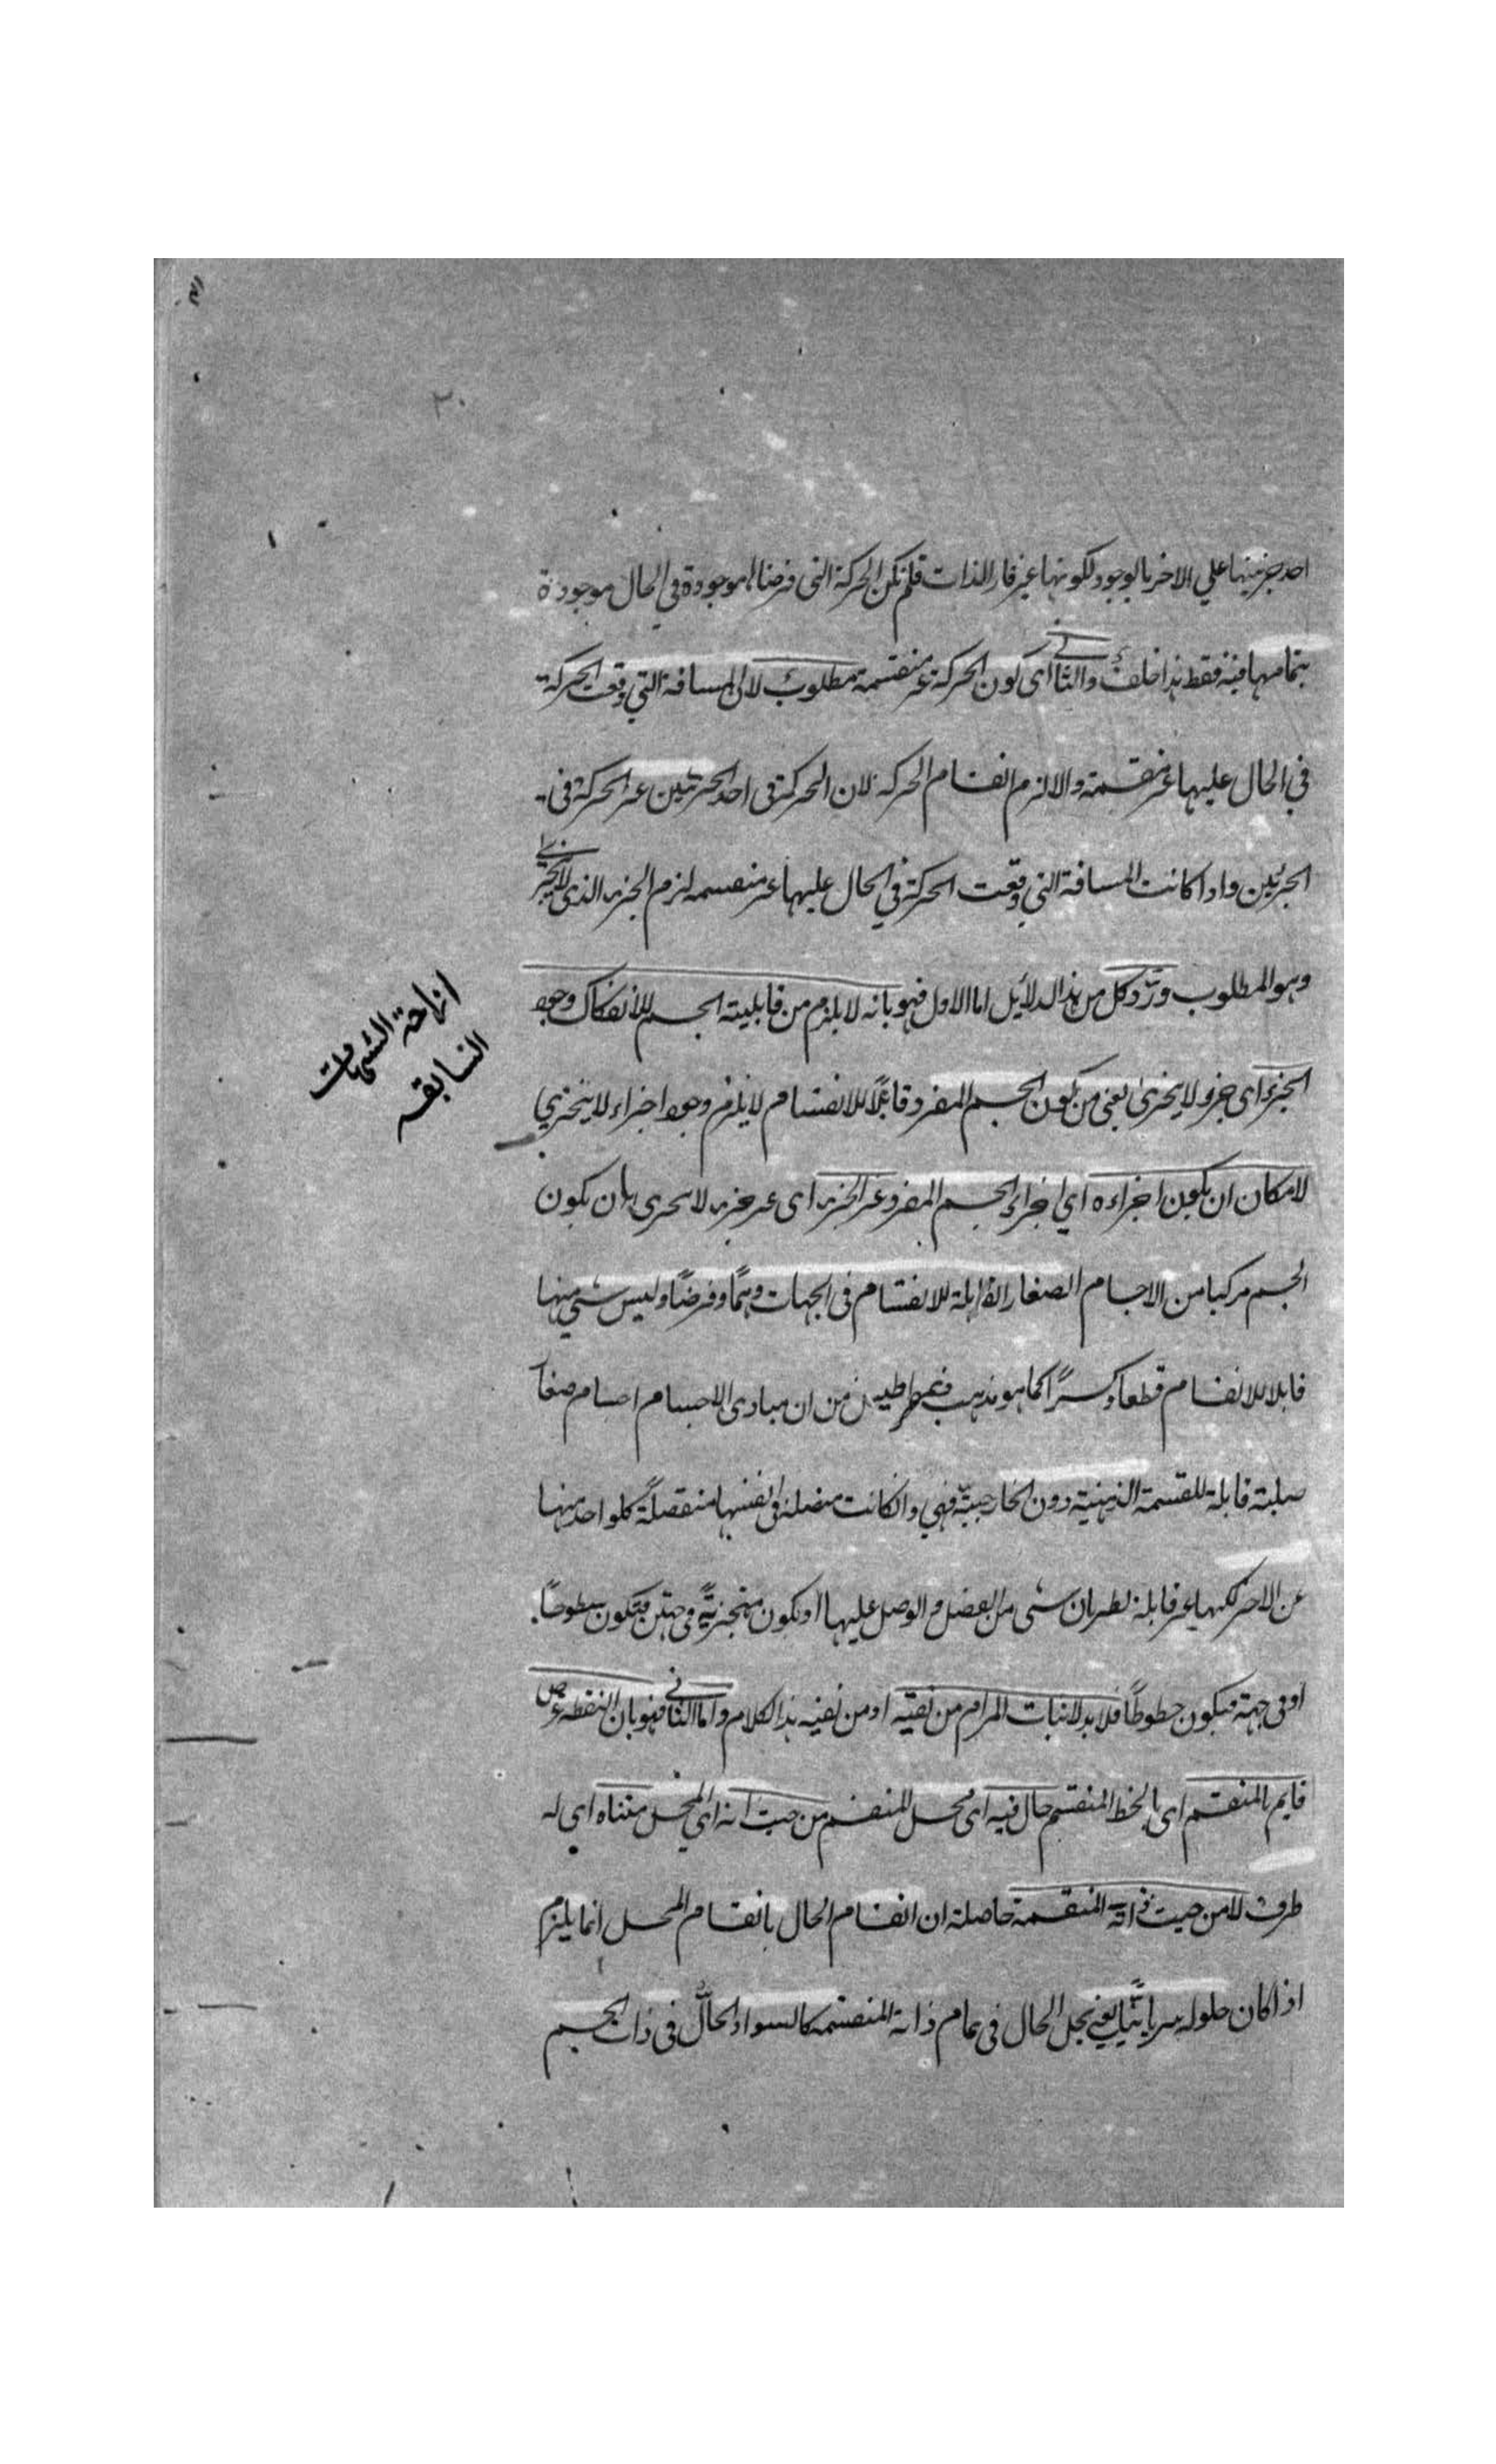 ٢٠
احد جزئيها علي الاخر بالوجود لكونها غير قار الذات فلم تكن الحركة التى فرضناها موجودة في الحال موجودة
بتمامها فيه فقط هذا خلف والثانى اى كون الحركة غير منقسمة مطلوب لان المسافة التي وقعت الحركة
في الحال عليها غير منقسمة والا لزم انقسام الحركة لان الحركة فى احد الجزئين غير الحركة فى
الجزئين واذا كانت المسافة التي وقعت الحركة في الحال عليها غير منقسمه لزم الجزء الذى لا يتجزى
وهو المطلوب ورُدّ كل من هذه الدلائل اما الاول فهو بانه لا يلزم من قابلية الجسم للانفكاك وجود
الجزء اى جزو لا يتجزى يعنى من كون الجسم المفرد قابلاً للانقسام لا يلزم وجود اجزاء لا يتجزي
لامكان ان يكون اجزاءه اي اجزاء الجسم المفرد غير الجزء اى غير جزء لا يتجزى بان يكون
الجسم مركبا من الاجسام الصغار القابلة للانقسام فى الجهات وهمًا وفرضًا وليس شئي منها
قابلا للانقسام قطعا وكسرًا كما هو مذهب ذيمقراطيس من ان مبادى الاجسام اجسام صغا
صلبة قابلة للقسمة الذهنية دون الخارجيّة فهي وان كانت متصلة فى انفسها منفصلةً كلواحد منها
عن الاخر لكنها غير قابلة لطريان شئ من الفصل والوصل عليها او يكون متجزيةً فى جهتين فيكون سطوحًا.
او فى جهة فيكون خطوطًا فلا بد لاثبات المرام من نفيه او من نفيه هذا الكلام واما الثانى فهو بان النقطة عرض
قايم بالمنقسم اى بالخط المنقسم حال فيه اى محل للمنقسم من حيث انه اي المحل متناه اي له
طرف لا من حيث ذاته المنقسمة حاصله ان انقسام الحال بانقسام المحل انما يلزم
اذا كان حلوله سريانيًّا يعنى يحل الحال فى تمام ذاته المنقسمه كالسواد الحالّ فى ذات الجسم
السابقه